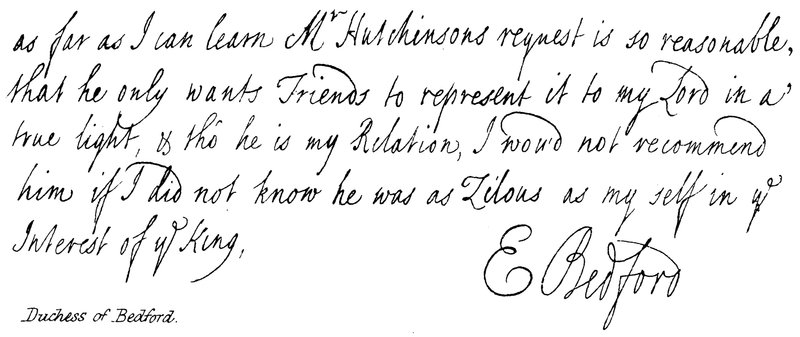 as far as I can learn Mr Hutchinsons request is so reasonable,
that he only wants Friends to represent it to my Lord in a
true light, & tho he is my Relation, I wou'd not recommend
him if I did not know he was as Zilous as my self in ye
Interest of ye King,
E Bedford
Duchess of Bedford.